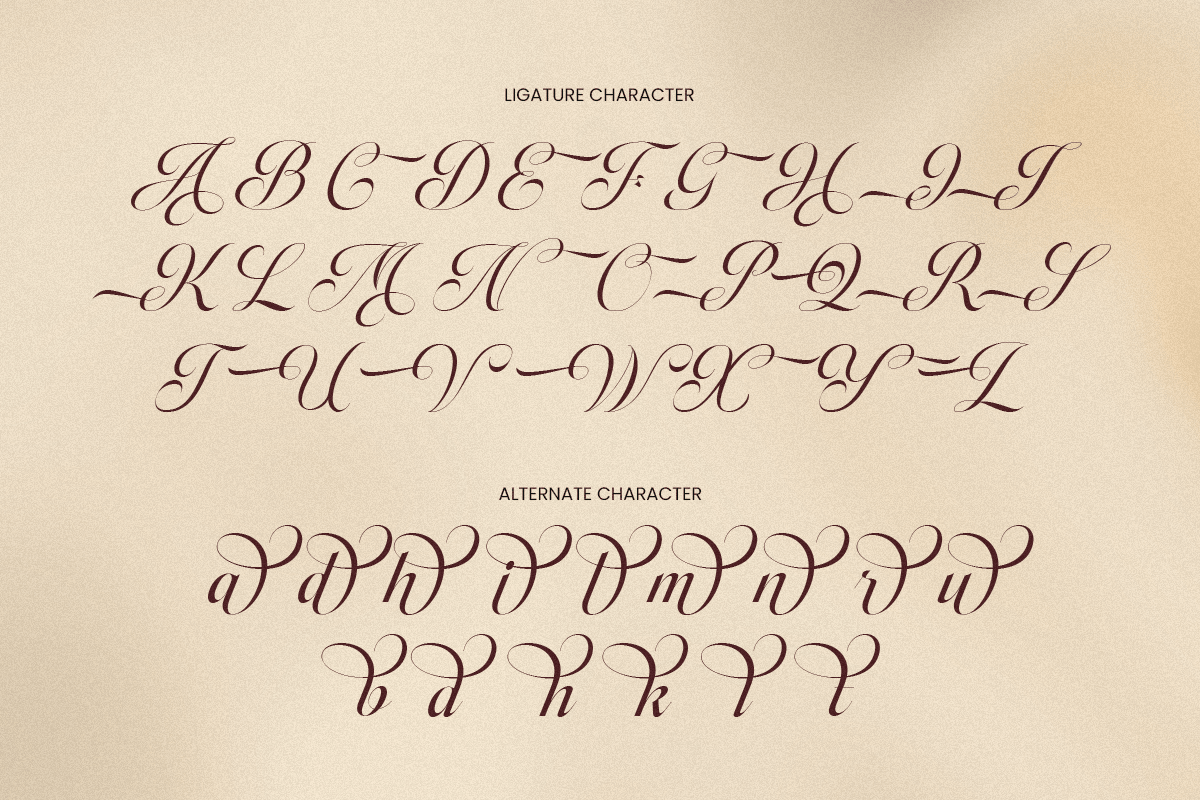 LIGATURE CHARACTER
A B C D E F G H I J
K L M N O P Q R S
T U V W X Y Z
ALTERNATE CHARACTER
a d h i l m n r u
b d h k l t